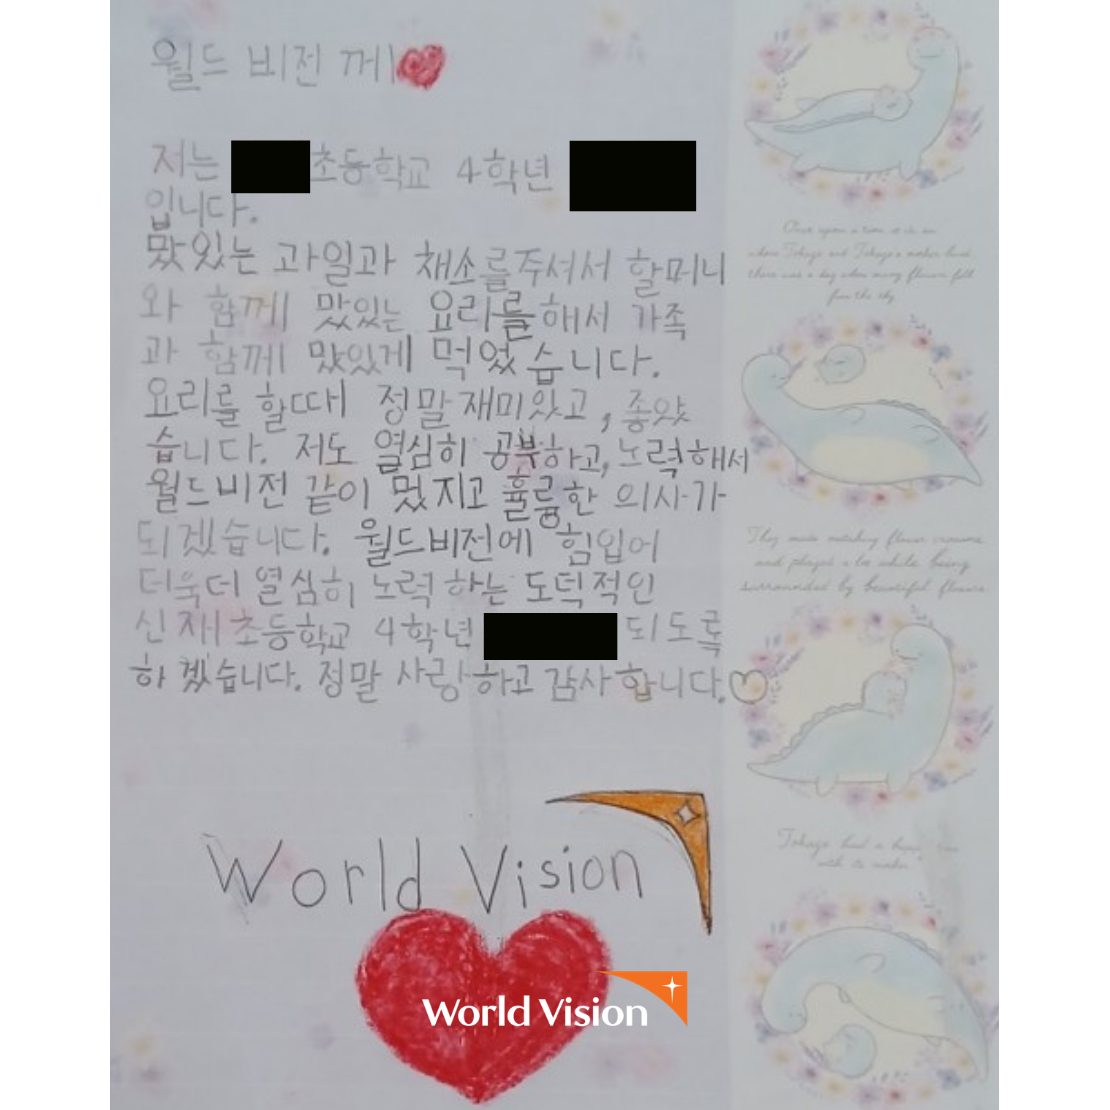 월드 비전 께
저는 초등학교 4학년
입니다.
맜있는 과일과 채소를주셔서 할머니
와 함께 맜있는 요리를해서 가족
과 함께 맜있게 먹었습니다.
요리를 할때 정말재미있고, 좋았
습니다. 저도 열심히 공부하고, 노력해서
월드비전 같이 멌지고 훌륭한 의사가
되겠습니다. 월드비전에 힘입어
더욱더 열심히 노력하는 도덕적인
신재초등학교 4학년 되도록
하겠습니다. 정말 사랑하고 감사합니다.
World Vision
World Vision
Once upon a time
where Tokage and Tokage's mother lived,
there was a day when many flowers fell
from the sky
They made matching flower crowns
and played a lot while being
surrounded by beautiful flowers
Tokage had a
with its mother